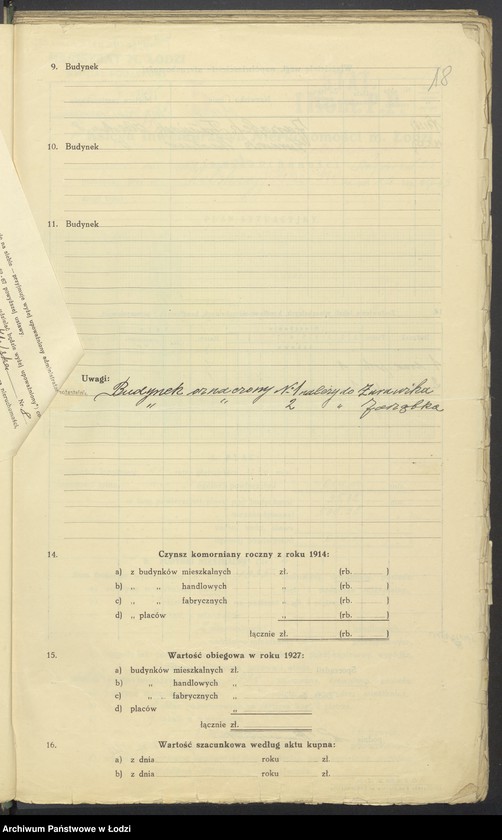 18
9. Budynek
10. Budynek
11. Budynek
Uwagi:
Budynek oznaczony № 1 należy do Żurawika
„ „ 2 „
14. Czynsz komorniany roczny z roku 1914:
a) z budynków mieszkalnych zł. (rb. )
b) „ „ handlowych „ (rb. )
c) „ „ fabrycznych „ (rb. )
d) „ placów „ (rb. )
łącznie zł. (rb. )
15. Wartość obiegowa w roku 1927:
a) budynków mieszkalnych zł.
b) „ handlowych „
c) „ „ fabrycznych „
d) placów „
łącznie zł.
16. Wartość szacunkowa według aktu kupna:
a) z dnia roku zł.
b) z dnia roku zł.
Archiwum Państwowe w Łodzi